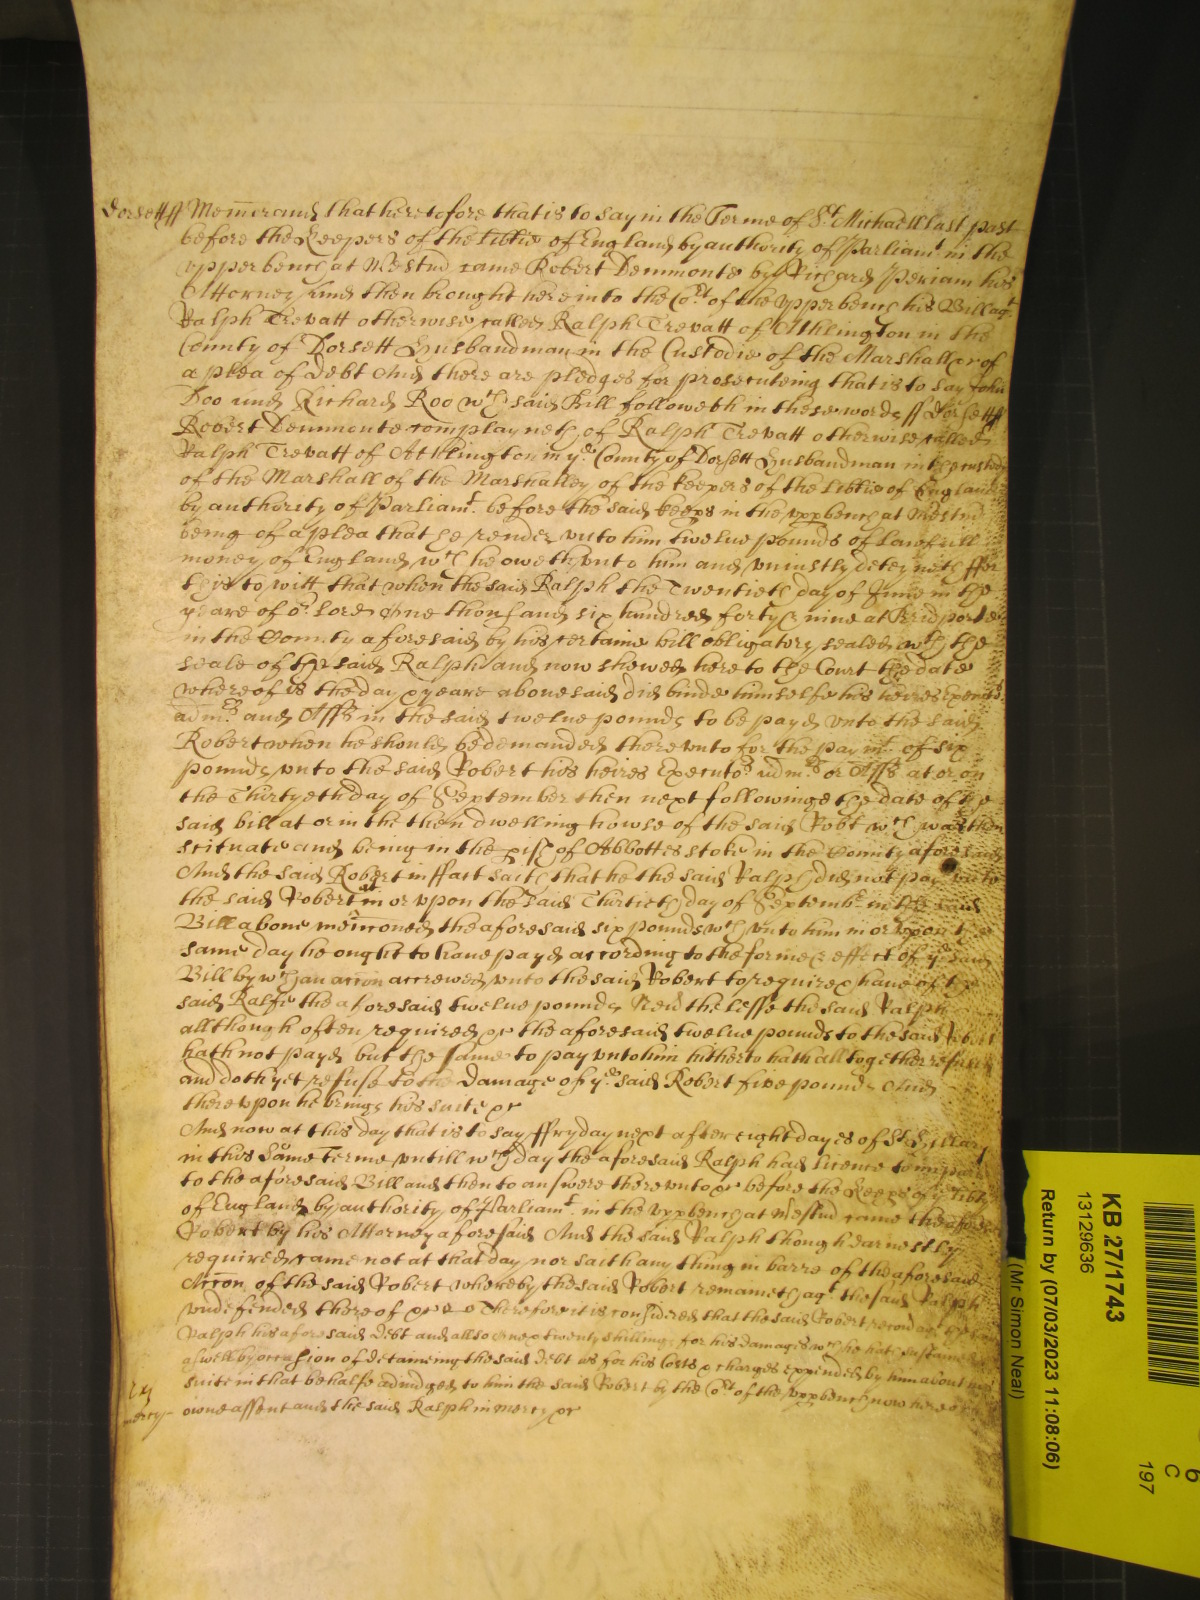 Dorsett ff Memorand that heretofore that is to say in the Terme of St. Michaell last past
before the Keepers of the Libtie of England by authority of Parliamt. in the
upper bench at Westmr came Robert Demmonte by Richard Periam his
Attorney And then brought here into the Cort of the upper bench his Bill agt.
Ralph Trevatt otherwise called Ralph Trevatt of Athlington in the
County of Dorsett Husbandman in the Custodie of the Marshall &c of
a plea of Debt And there are pledges for prosecuteing that is to say John
Doo and Richard Roo wch said Bill followeth in these words ff Dorsett ff
Robert Demmonte complayneth of Ralph Trevatt otherwise called
Ralph Trevatt of Athlington in ye County of Dorsett Husbandman in the custody
of the Marshall of the Marshalley of the keepers of the Libtie of England
by authority of Parliamt. before the said keeps in the uppbench at Westmr
being of a plea that he render unto him twelve pounds of lawfull
money of England wch he oweth unto him and uniustly deteyneth ffor
that is to witt that when the said Ralph the Twentieth day of June in the
yeare of or Lord One thousand six hundred forty & nine at Bridporte
in the County aforesaid by his certaine bill obligatory sealed wth the
seale of the said Ralph and now shewed here to the Court the date
whereof is the day & yeare above said did binde himselfe his heires Executrs
admrs and Assgs in the said twelve pounds to be payd unto the said
Robert when he should be demanded thereunto for the paymt. of six
pounds unto the said Robert his heires Executors admrs or Assgs at or on
the Thirtyeth day of September then next followinge the date of the
said bill at or in the then dwelling howse of the said Robt wch was then
scituate and being in the pish of Abbottes stoke in the County aforesaid
And the said Robert in ffact saith that he the said Ralph did not pay unto
the said Robert at or uppon the said Thirtieth day of Septembr in the said
Bill above menconed the aforesaid six pounds wch unto him in or uppon the
same day he ought to have payd according to the forme & effect of ye said
Bill by wch an accon accrewed unto the said Robert to require & have of the
said Ralfe the aforesaid twelve pounds Nevthelesse the said Ralph
allthough often required &c the aforesaid twelve pounds to the said Robert
hath not payd but the same to pay unto him hitherto hath alltogether refused
and doth yet refuse to the Damage of ye said Robert five pounds And
thereupon he brings his suite &c
And now at this day that is to say ffryday next after eight dayes of St. Hillary
in this same Terme untill wch day the aforesaid Ralph had licence to imparle
to the aforesaid Bill and then to answere thereunto &c before the Keeps of ye Libtie
of England by authority of Parliamt. in the uppbench at Westmr came the aforesaid
Robert by his Attorney aforesaid And the said Ralph though earnestly
required came not at that day nor saith any thing in barre of the aforesaid
Accon of the said Robert whereby the said Robert remaineth agt. the said Ralph
undefended thereof &c Therefore it is considered that the said Robert recover agt. the said
Ralph his aforesaid debt and allso twenty shillings for his damages wch he hath susteined
aswell by occasion of deteineing the said debt as for his costs & charges expended by him about his
suite in that behalfe adiudged to him the said Robert by the Cort of the uppbench now here of
owne assent and the said Ralph in mercy &c
In
mercy
KB 27/1743
13129636
Return by (07/03/2023 11:08:06)
(Mr Simon Neal)
6
C
197